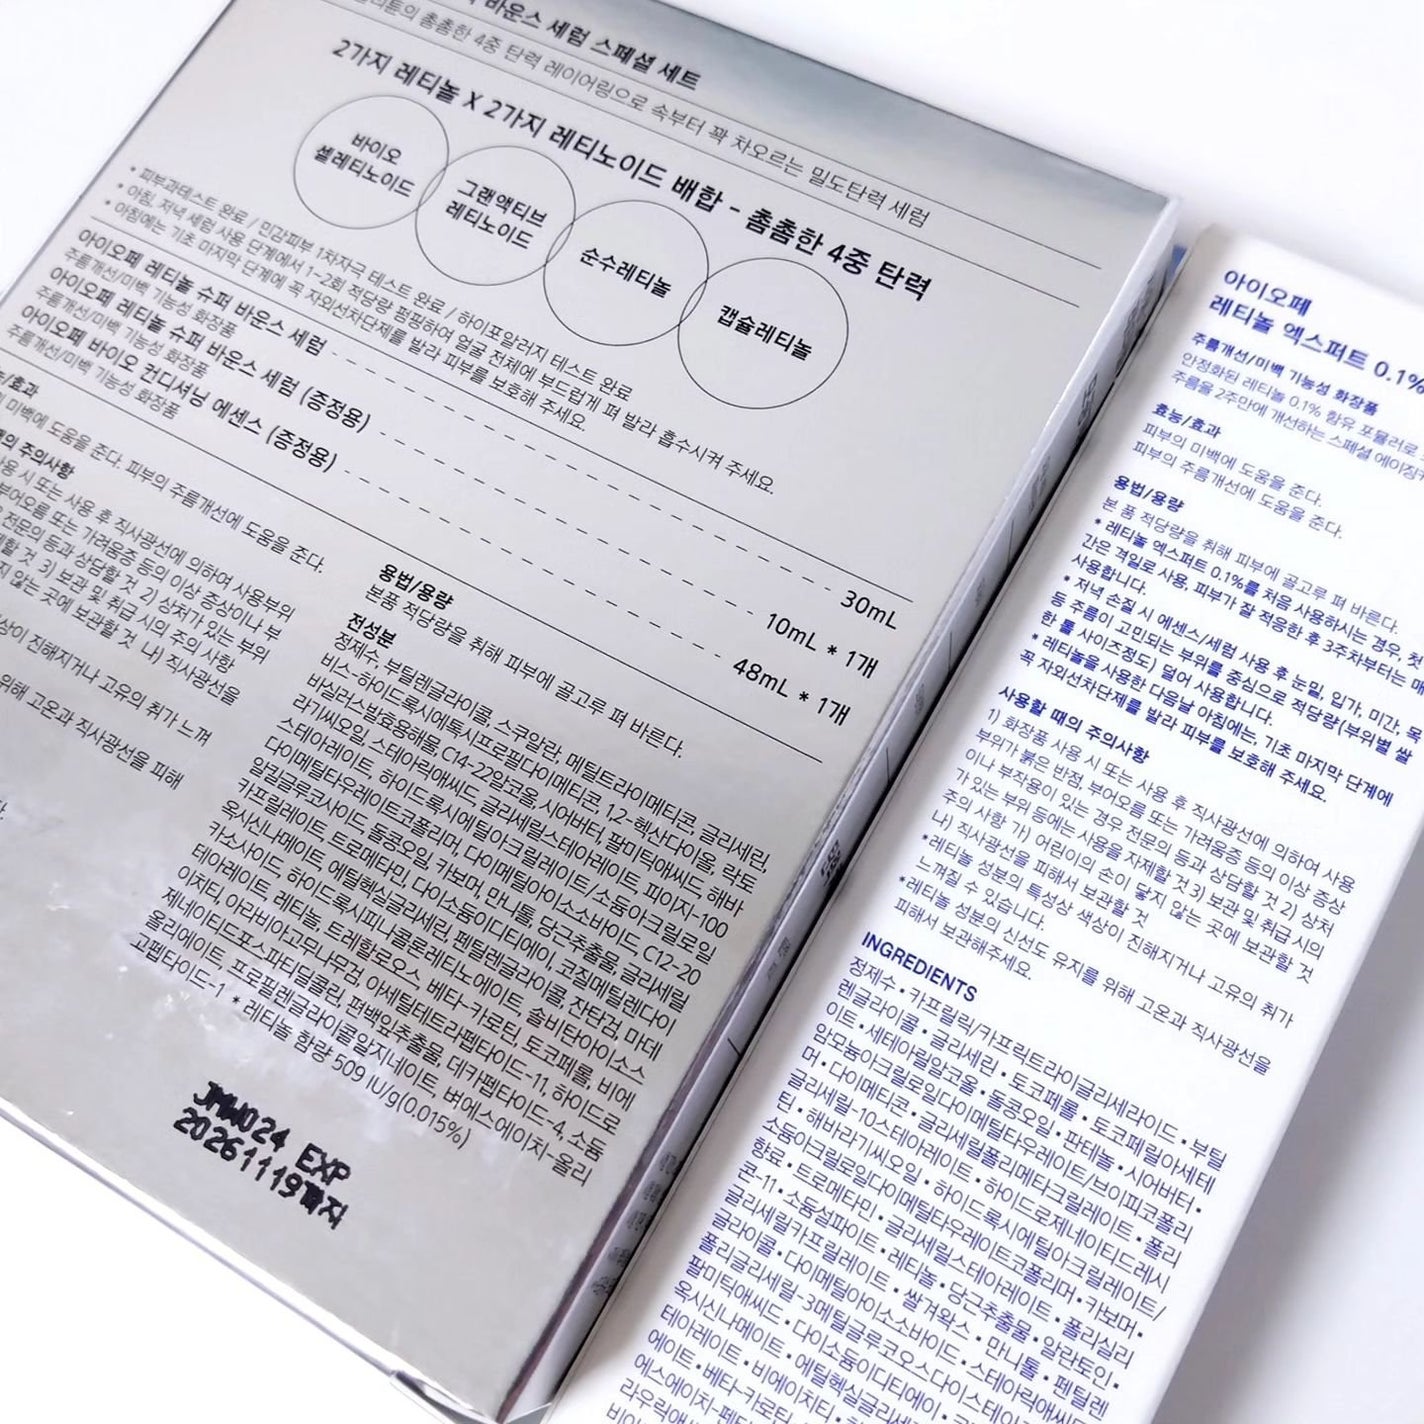 바운스 세럼 스페셜 세트
촘촘한 4중 탄력 레이어링으로 속부터 꽉 차오르는 밀도탄력 세럼
2가지 레티놀 X 2가지 레티노이드 배합 - 촘촘한 4중 탄력
바이오
셀레티노이드
그랜액티브
레티노이드
순수레티놀
캡슐레티놀
• 피부과테스트 완료 / 민감피부 1차자극 테스트 완료 / 하이포알러지 테스트 완료
• 아침, 저녁 세럼 사용 단계에서 1-2회 적당량 펌핑하여 얼굴 전체에 부드럽게 펴 발라 흡수시켜 주세요.
• 아침에는 기초 마지막 단계에 꼭 자외선차단제를 발라 피부를 보호해 주세요.
아이오페 레티놀 슈퍼 바운스 세럼 30mL
주름개선/미백 기능성 화장품
아이오페 레티놀 슈퍼 바운스 세럼 (증정용) 10mL * 1개
주름개선/미백 기능성 화장품
아이오페 바이오 컨디셔닝 에센스 (증정용) 48mL * 1개
주름개선/미백 기능성 화장품
/효과
미백에 도움을 준다. 피부의 주름개선에 도움을 준다.
의 주의사항
사용 시 또는 사용 후 직사광선에 의하여 사용부위
부어오름 또는 가려움증 등의 이상 증상이나 부
전문의 등과 상담할 것 2) 상처가 있는 부위
제할 것 3) 보관 및 취급 시의 주의 사항
지 않는 곳에 보관할 것 나) 직사광선을
상이 진해지거나 고유의 취가 느껴
위해 고온과 직사광선을 피해
용법/용량
본품 적당량을 취해 피부에 골고루 펴 바른다.
전성분
정제수, 부틸렌글라이콜, 스쿠알란, 메틸트라이메티콘, 1,2-헥산다이올, 글리세린,
비스-하이드록시에톡시프로필다이메티콘, 락토
바실러스발효용해물, C14-22알코올, 시어버터, 팔미틱애씨드, 해바
라기씨오일, 스테아릭애씨드, 글리세릴스테아레이트, 피이지-100
스테아레이트, 하이드록시에틸아크릴레이트/소듐아크릴로일
다이메틸타우레이트코폴리머, 다이메틸아이소소바이드, C12-20
알킬글루코사이드, 돌콩오일, 카보머, 만니톨, 당근추출물, 글리세릴
카프릴레이트, 트로메타민, 다이소듐이디티에이, 코질메틸렌다이
옥시신나메이트, 에틸헥실글리세린, 펜틸렌글라이콜, 잔탄검, 마데
카소사이드, 하이드록시피나콜론레티노에이트, 솔비탄아이소스
테아레이트, 레티놀, 트레할로오스, 베타-카로틴, 토코페롤, 비에
이치티, 아라비아고무나무검, 아세틸테트라펩타이드-11, 하이드로
제네이티드포스파티딜콜린, 편백잎추출물, 데카펩타이드-4, 소듐
올리에이트, 프로필렌글라이콜알지네이트, 벼에스에이치-올리
고펩타이드-1 * 레티놀 함량 509 IU/g(0.015%)
JMW024 EXP
20261119까지
아이오페
레티놀 엑스퍼트 0.1%
주름개선/미백 기능성 화장품
안정화된 레티놀 0.1% 함유 포뮬러로
주름을 2주만에 개선하는 스페셜 에이징
효능/효과
피부의 미백에 도움을 준다.
피부의 주름개선에 도움을 준다.
용법/용량
본 품 적당량을 취해 피부에 골고루 펴 바른다.
* 레티놀 엑스퍼트 0.1%를 처음 사용하시는 경우, 첫
간은 격일로 사용, 피부가 잘 적응한 후 3주차부터는 매
사용합니다.
* 저녁 손질 시 에센스/세럼 사용 후 눈밑, 입가, 미간, 목
등 주름이 고민되는 부위를 중심으로 적당량(부위별 쌀
한 톨 사이즈정도) 덜어 사용합니다.
* 레티놀을 사용한 다음날 아침에는, 기초 마지막 단계에
꼭 자외선차단제를 발라 피부를 보호해 주세요.
사용할 때의 주의사항
1) 화장품 사용 시 또는 사용 후 직사광선에 의하여 사용
부위가 붉은 반점, 부어오름 또는 가려움증 등의 이상 증상
이나 부작용이 있는 경우 전문의 등과 상담할 것 2) 상처
가 있는 부위 등에는 사용을 자제할 것 3) 보관 및 취급 시의
주의 사항 가) 어린이의 손이 닿지 않는 곳에 보관할 것
나) 직사광선을 피해서 보관할 것
*레티놀 성분의 특성상 색상이 진해지거나 고유의 취가
느껴질 수 있습니다.
*레티놀 성분의 신선도 유지를 위해 고온과 직사광선을
피해서 보관해주세요.
INGREDIENTS
정제수 • 카프릴릭/카프릭트라이글리세라이드 • 부틸
렌글라이콜 • 글리세린 • 토코페롤 • 토코페릴아세테
이트 • 세테아릴알코올 • 돌콩오일 • 판테놀 • 시어버터 •
암모늄아크릴로일다이메틸타우레이트/브이피코폴리
머 • 다이메티콘 • 글리세릴폴리메타크릴레이트 • 폴리
글리세릴-10스테아레이트 • 하이드로제네이티드레시
틴 • 해바라기씨오일 • 하이드록시에틸아크릴레이트/
소듐아크릴로일다이메틸타우레이트코폴리머 • 카보머 •
향료 • 트로메타민 • 글리세릴스테아레이트 • 폴리실리
콘-11 • 소듐설파이트 • 레티놀 • 당근추출물 • 알란토인 •
글리세릴카프릴레이트 • 쌀겨왁스 • 만니톨 • 펜틸렌
글라이콜 • 다이메틸아이소소바이드 • 스테아릭애씨드
폴리글리세릴-3메틸글루코오스다이스테아
팔미틱애씨드 • 다이소듐이디티에이
옥시신나메이트 • 에틸헥실글리세
테아레이트 • 비에이치티
에이트 • 베타-카로틴
에스에이치-펩타
라우릭애씨